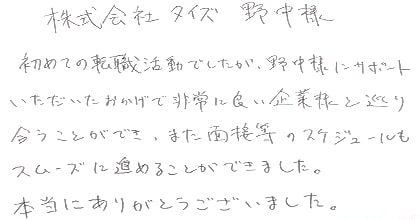 株式会社タイズ 野中様
初めての転職活動でしたが、野中様にサポート
いただいたおかげで非常に良い企業様と巡り
合うことができ、また面接等のスケジュールも
スムーズに進めることができました。
本当にありがとうございました。